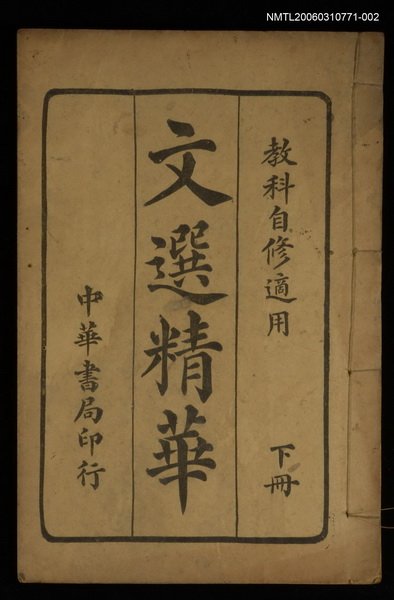 NMTL20060310771-002
教科自修適用
下冊
文選精華
中華書局印行